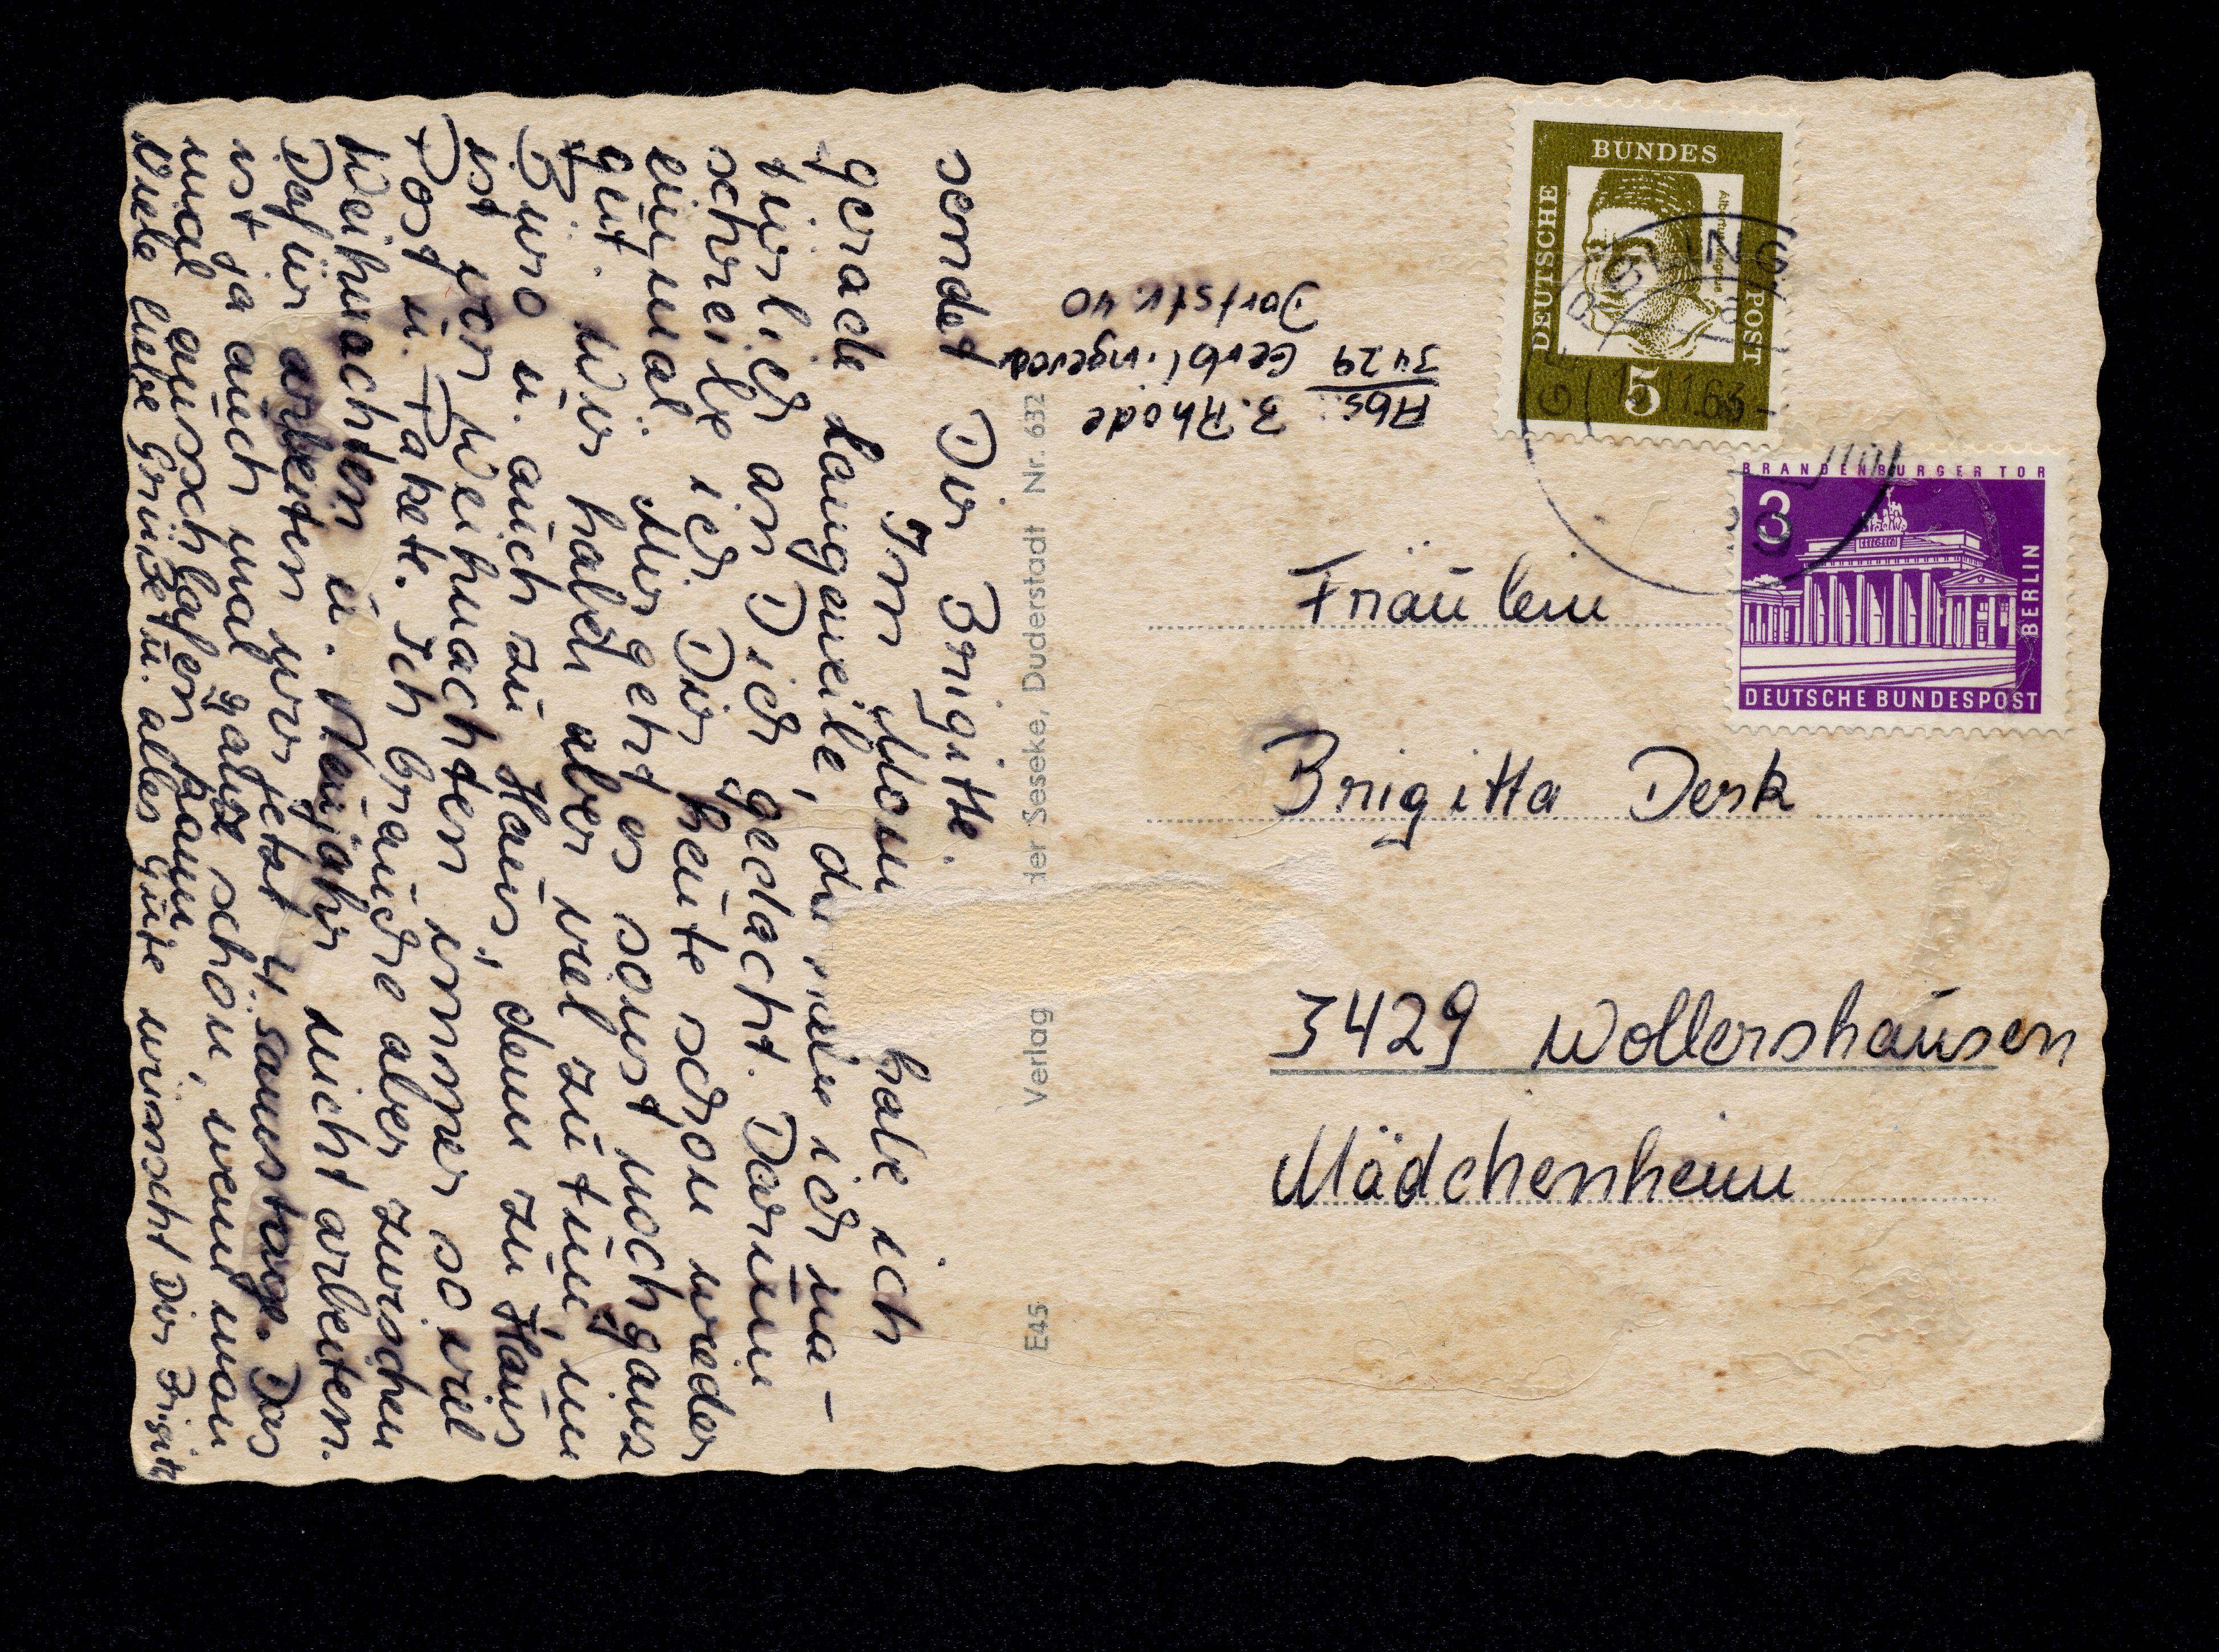 sendet Dir Brigitte.
Im Mom habe ich
gerade Langeweile, da ich na-
türlich an Dich gedacht. Darum
schreibe ich Dir heute schon wieder
einmal. Mir geht es sonst noch ganz
gut. Wir haben aber viel zu tun, im
Büro u. auch zu Haus, denn zu Haus
ist vor Weihnachten immer so viel
Post u. Pakete. Ich brauche aber zwischen
Weihnachten u. Neujahr nicht arbeiten.
Dafür arbeiten wir jetzt 4 samstage. Das
ist ja auch mal ganz schön, wenn man
mal ausschlafen kann
Viele liebe Grüße u. alles gute wünscht Dir Brigitte
E45 Verlag der Seseke, Duderstadt Nr. 632
Abs.: B. Rhode
3429 Gerblingerode
Dorfstr. 40
DEUTSCHE BUNDES POST
5
BRANDENBURGER TOR
3
BERLIN
DEUTSCHE BUNDESPOST
Fräulein
Brigitta Derk
3429 Wollershausen
Mädchenheim